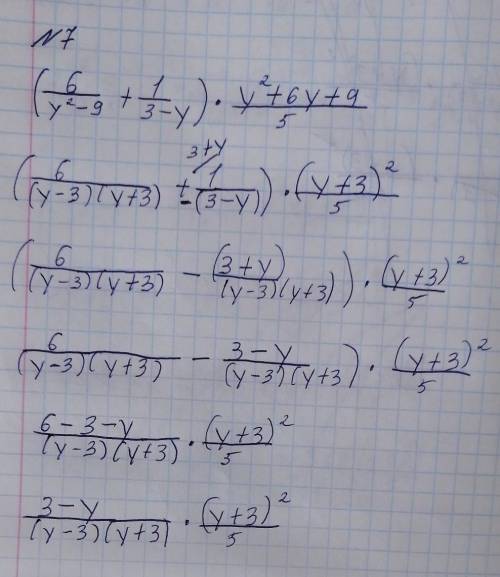 №7
(6/(y²-9) + 1/(3-y)) · (y²+6y+9)/5
3+y
(6/((y-3)(y+3)) + 1/(-(3-y))) · (y+3)²/5
(6/((y-3)(y+3)) - (3+y)/((y-3)(y+3))) · (y+3)²/5
6/((y-3)(y+3)) - (3-y)/((y-3)(y+3)) ) · (y+3)²/5
(6-3-y)/((y-3)(y+3)) · (y+3)²/5
(3-y)/((y-3)(y+3)) · (y+3)²/5